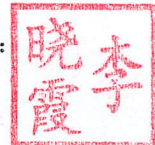 李
晓霞